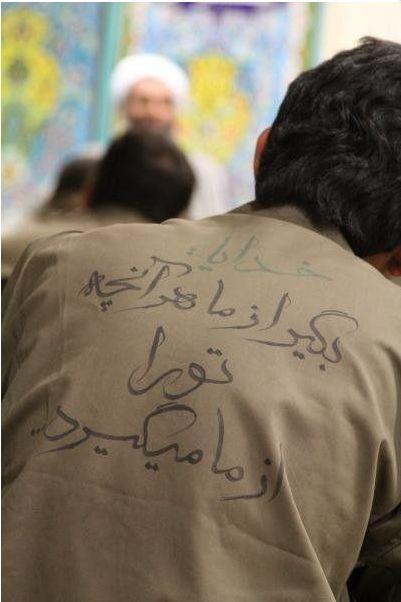 خدایا:
بگیر از ما هر آنچه
تو را
از ما میگیرد..